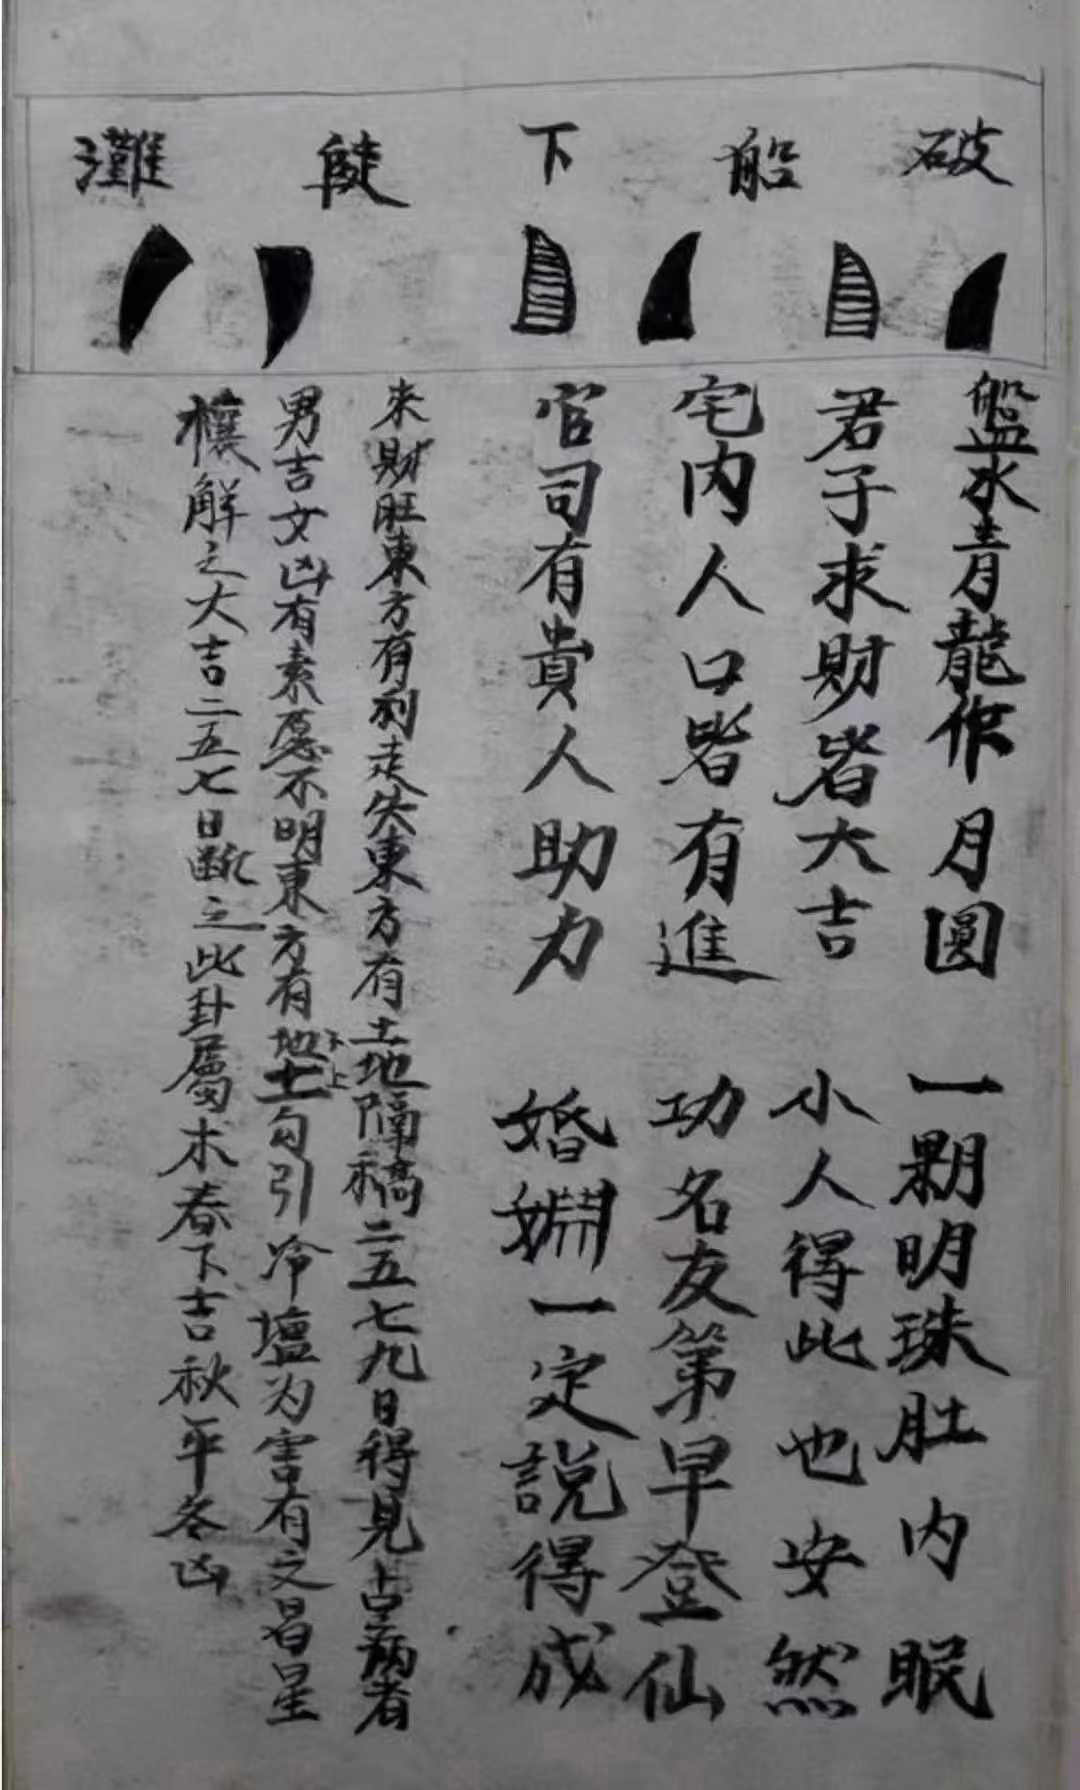 破船下陡灘
盤水青龍作月圓 一顆明珠肚内眠
君子求財者大吉 小人得此也安然
宅内人口皆有進 功名友第早登仙
官司有貴人助力 婚姻一定說得成
来財旺東方有利走失東方有土地隔稿二五七九日得見占病者
男吉女凶有素愿不明東方有地土下上勾引冷壇为害有文昌星
禳解之大吉二五七日斷之此卦屬木春下吉秋平冬凶